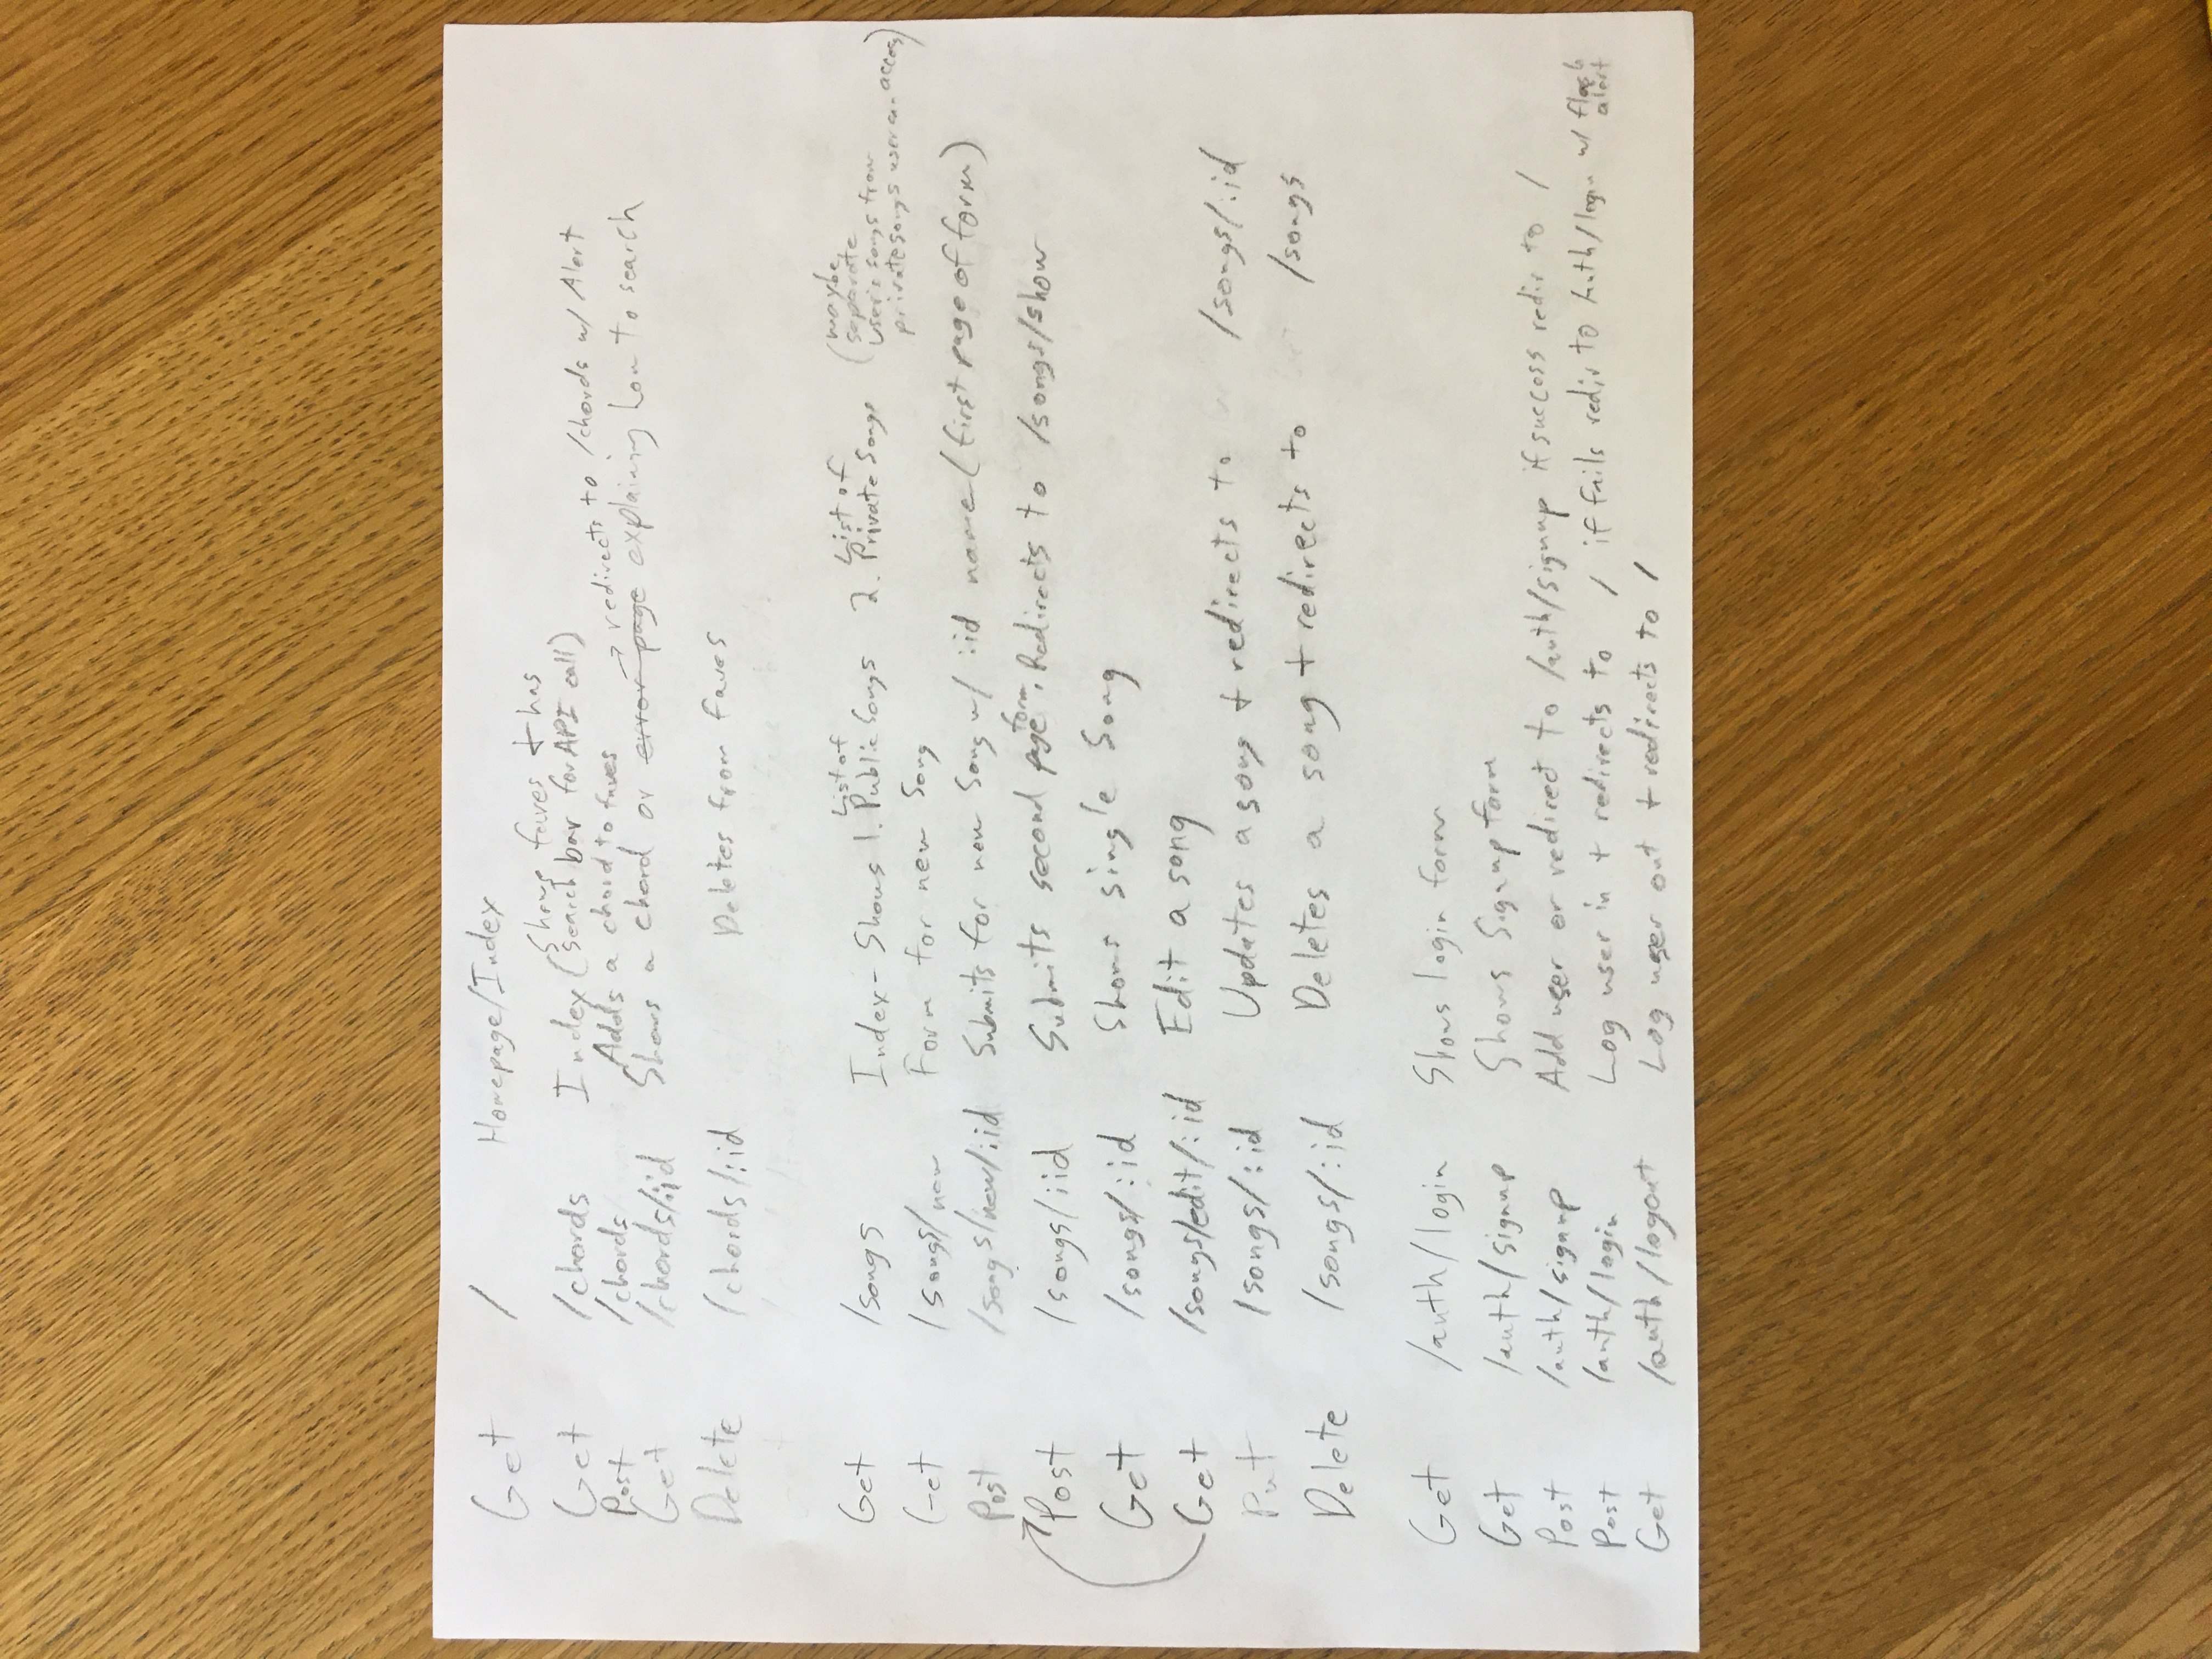 Get / Homepage/Index
Shows faves + has
Get /chords Index (search bar for API call)
redirects to /chords w/ Alert
Post /chords Adds a chord to faves
Get /chords/:id Shows a chord or error page explaining how to search
Delete /chords/:id Deletes from faves
List of List of
Get /songs Index - Shows 1. Public Songs 2. Private Songs
(maybe
separate
user's songs from
private songs user can access)
Get /songs/new Form for new Song
Post /songs/new/:id Submits for new Song w/ :id name (first page of form)
Post /songs/:id Submits second page form. Redirects to /songs/show
Get /songs/:id Shows single Song
Get /songs/edit/:id Edit a song
Put /songs/:id Updates a song + redirects to /songs/:id
Delete /songs/:id Deletes a song + redirects to /songs
Get /auth/login Shows login form
Get /auth/signup Shows Signup form
Post /auth/signup Add user or redirect to /auth/signup if success redir to /
Post /auth/login Log user in + redirects to / if fails redir to Auth/login w/ flash
alert
Get /auth/logout Log user out + redirects to /